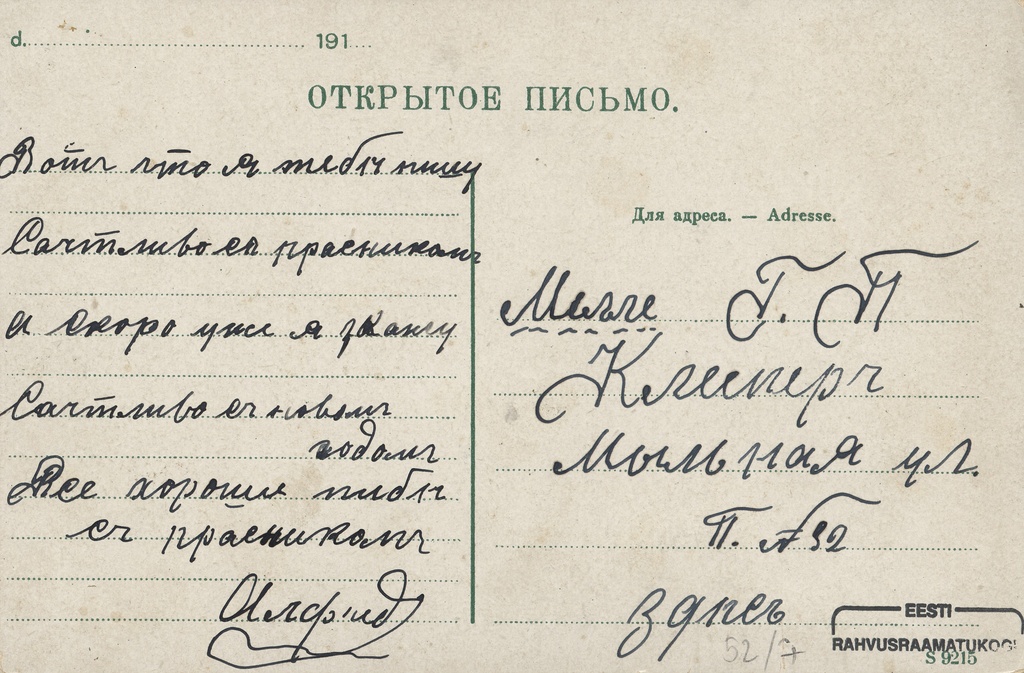 d. 191
ОТКРЫТОЕ ПИСЬМО.
Вотъ что я тебѣ пишу
Сачтливо съ прасникомъ
а скоро уже я скажу
Сачтливо съ новомъ
годомъ
Все хороше тибѣ
съ прасникомъ
Алфрид
Для адреса. — Adresse.
Г. П
Клеперъ
Мыльная ул.
П. №32
Здѣсь
52/7
EESTI
RAHVUSRAAMATUKOGU
S 9215